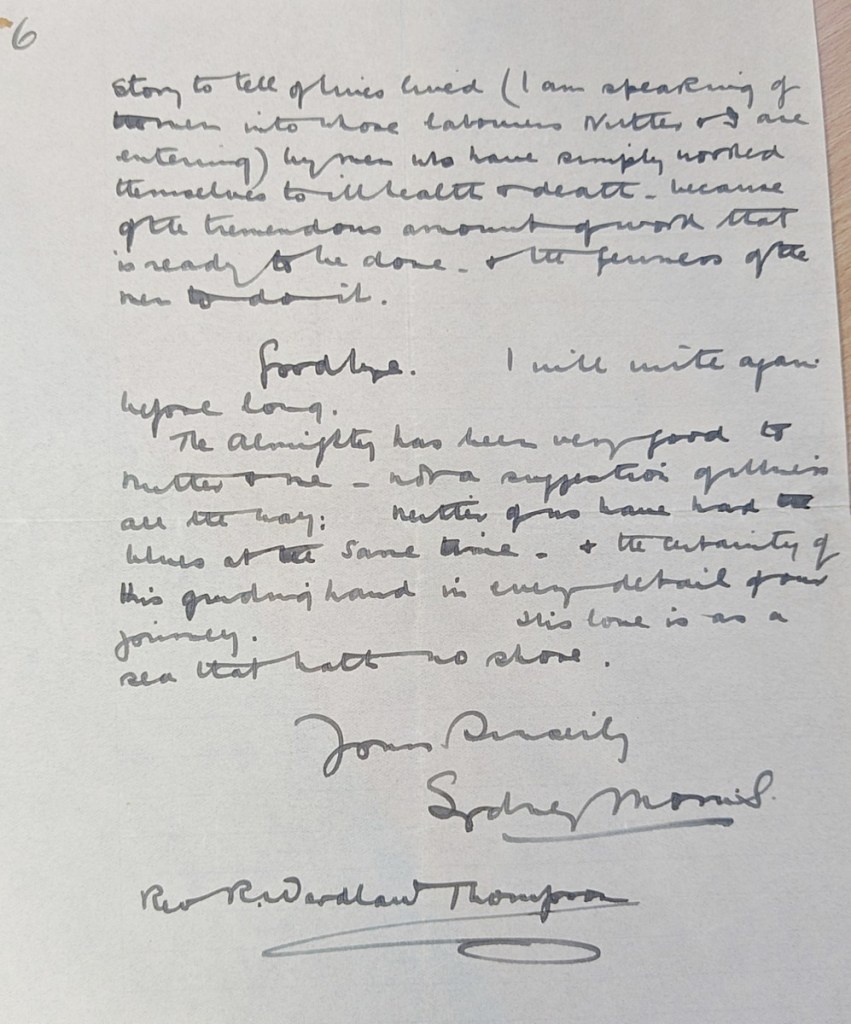 6
story to tell of lives lived (I am speaking of
men into whose labours Nutter & I are
entering) by men who have simply worked
themselves to ill health & death - because
of the tremendous amount of work that
is ready to be done - & the fewness of the
men to do it.
Goodbye. I will write again
before long.
The Almighty has been very good to
Nutter & me - not a suggestion of illness
all the way: Neither of us have had the
blues at the same time - & the certainty of
His guiding hand in every detail of our
journey. His love is as a
sea that hath no shore.
Yours Sincerely
Sydney Morris.
Rev R. Wardlaw Thompson